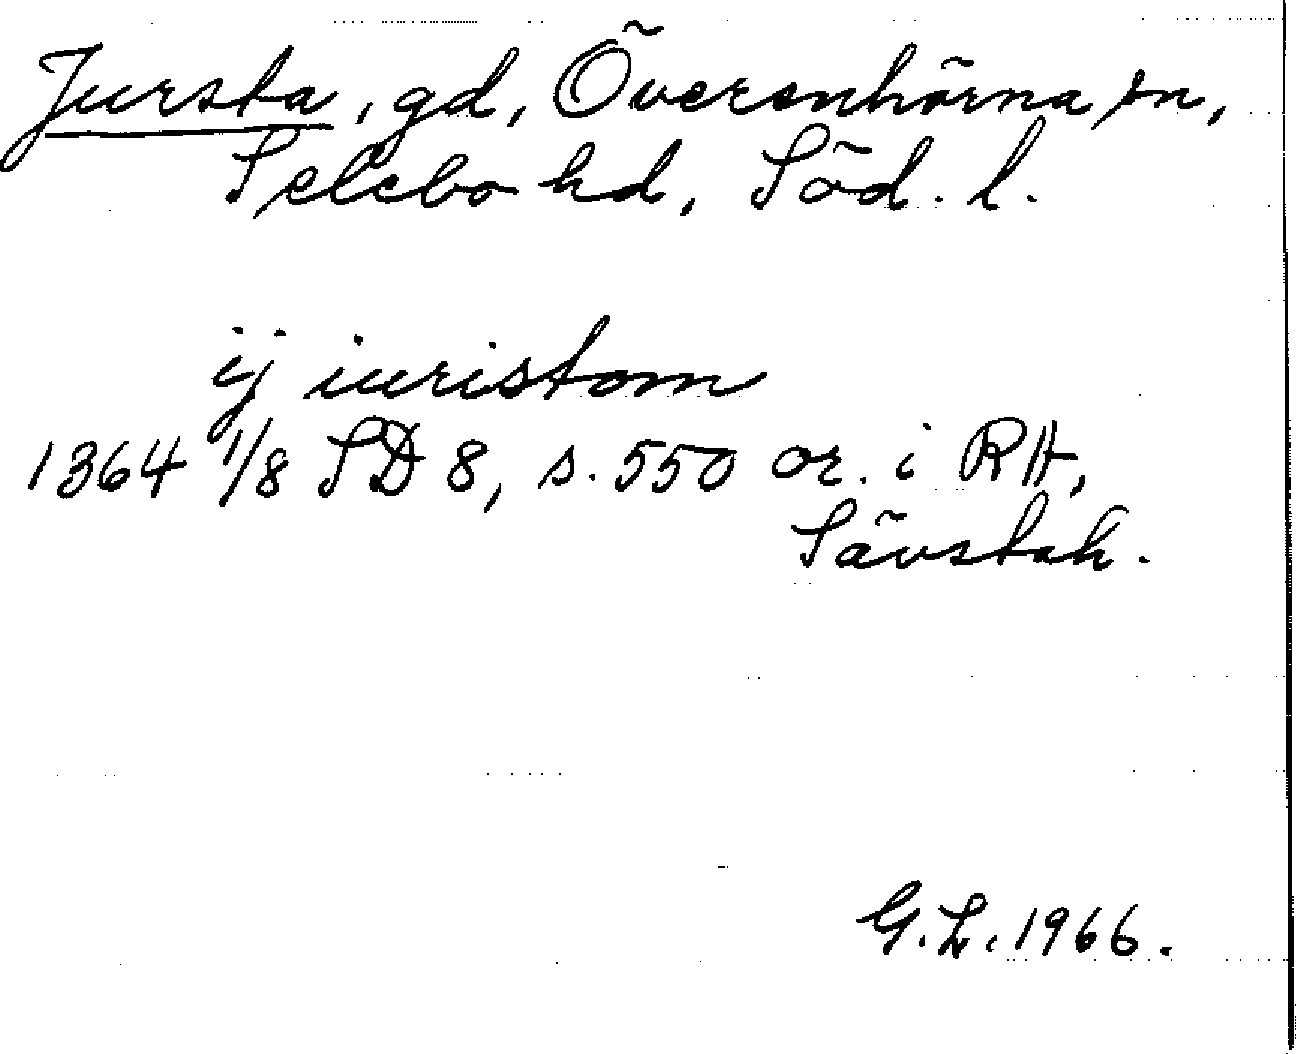 Jursta, gd, Överenhörna sn,
Selebo hd, Söd. l.
ij iuristom
1364 1/8 SD 8, s. 550 or. i RA,
Sävstah.
G.L. 1966.